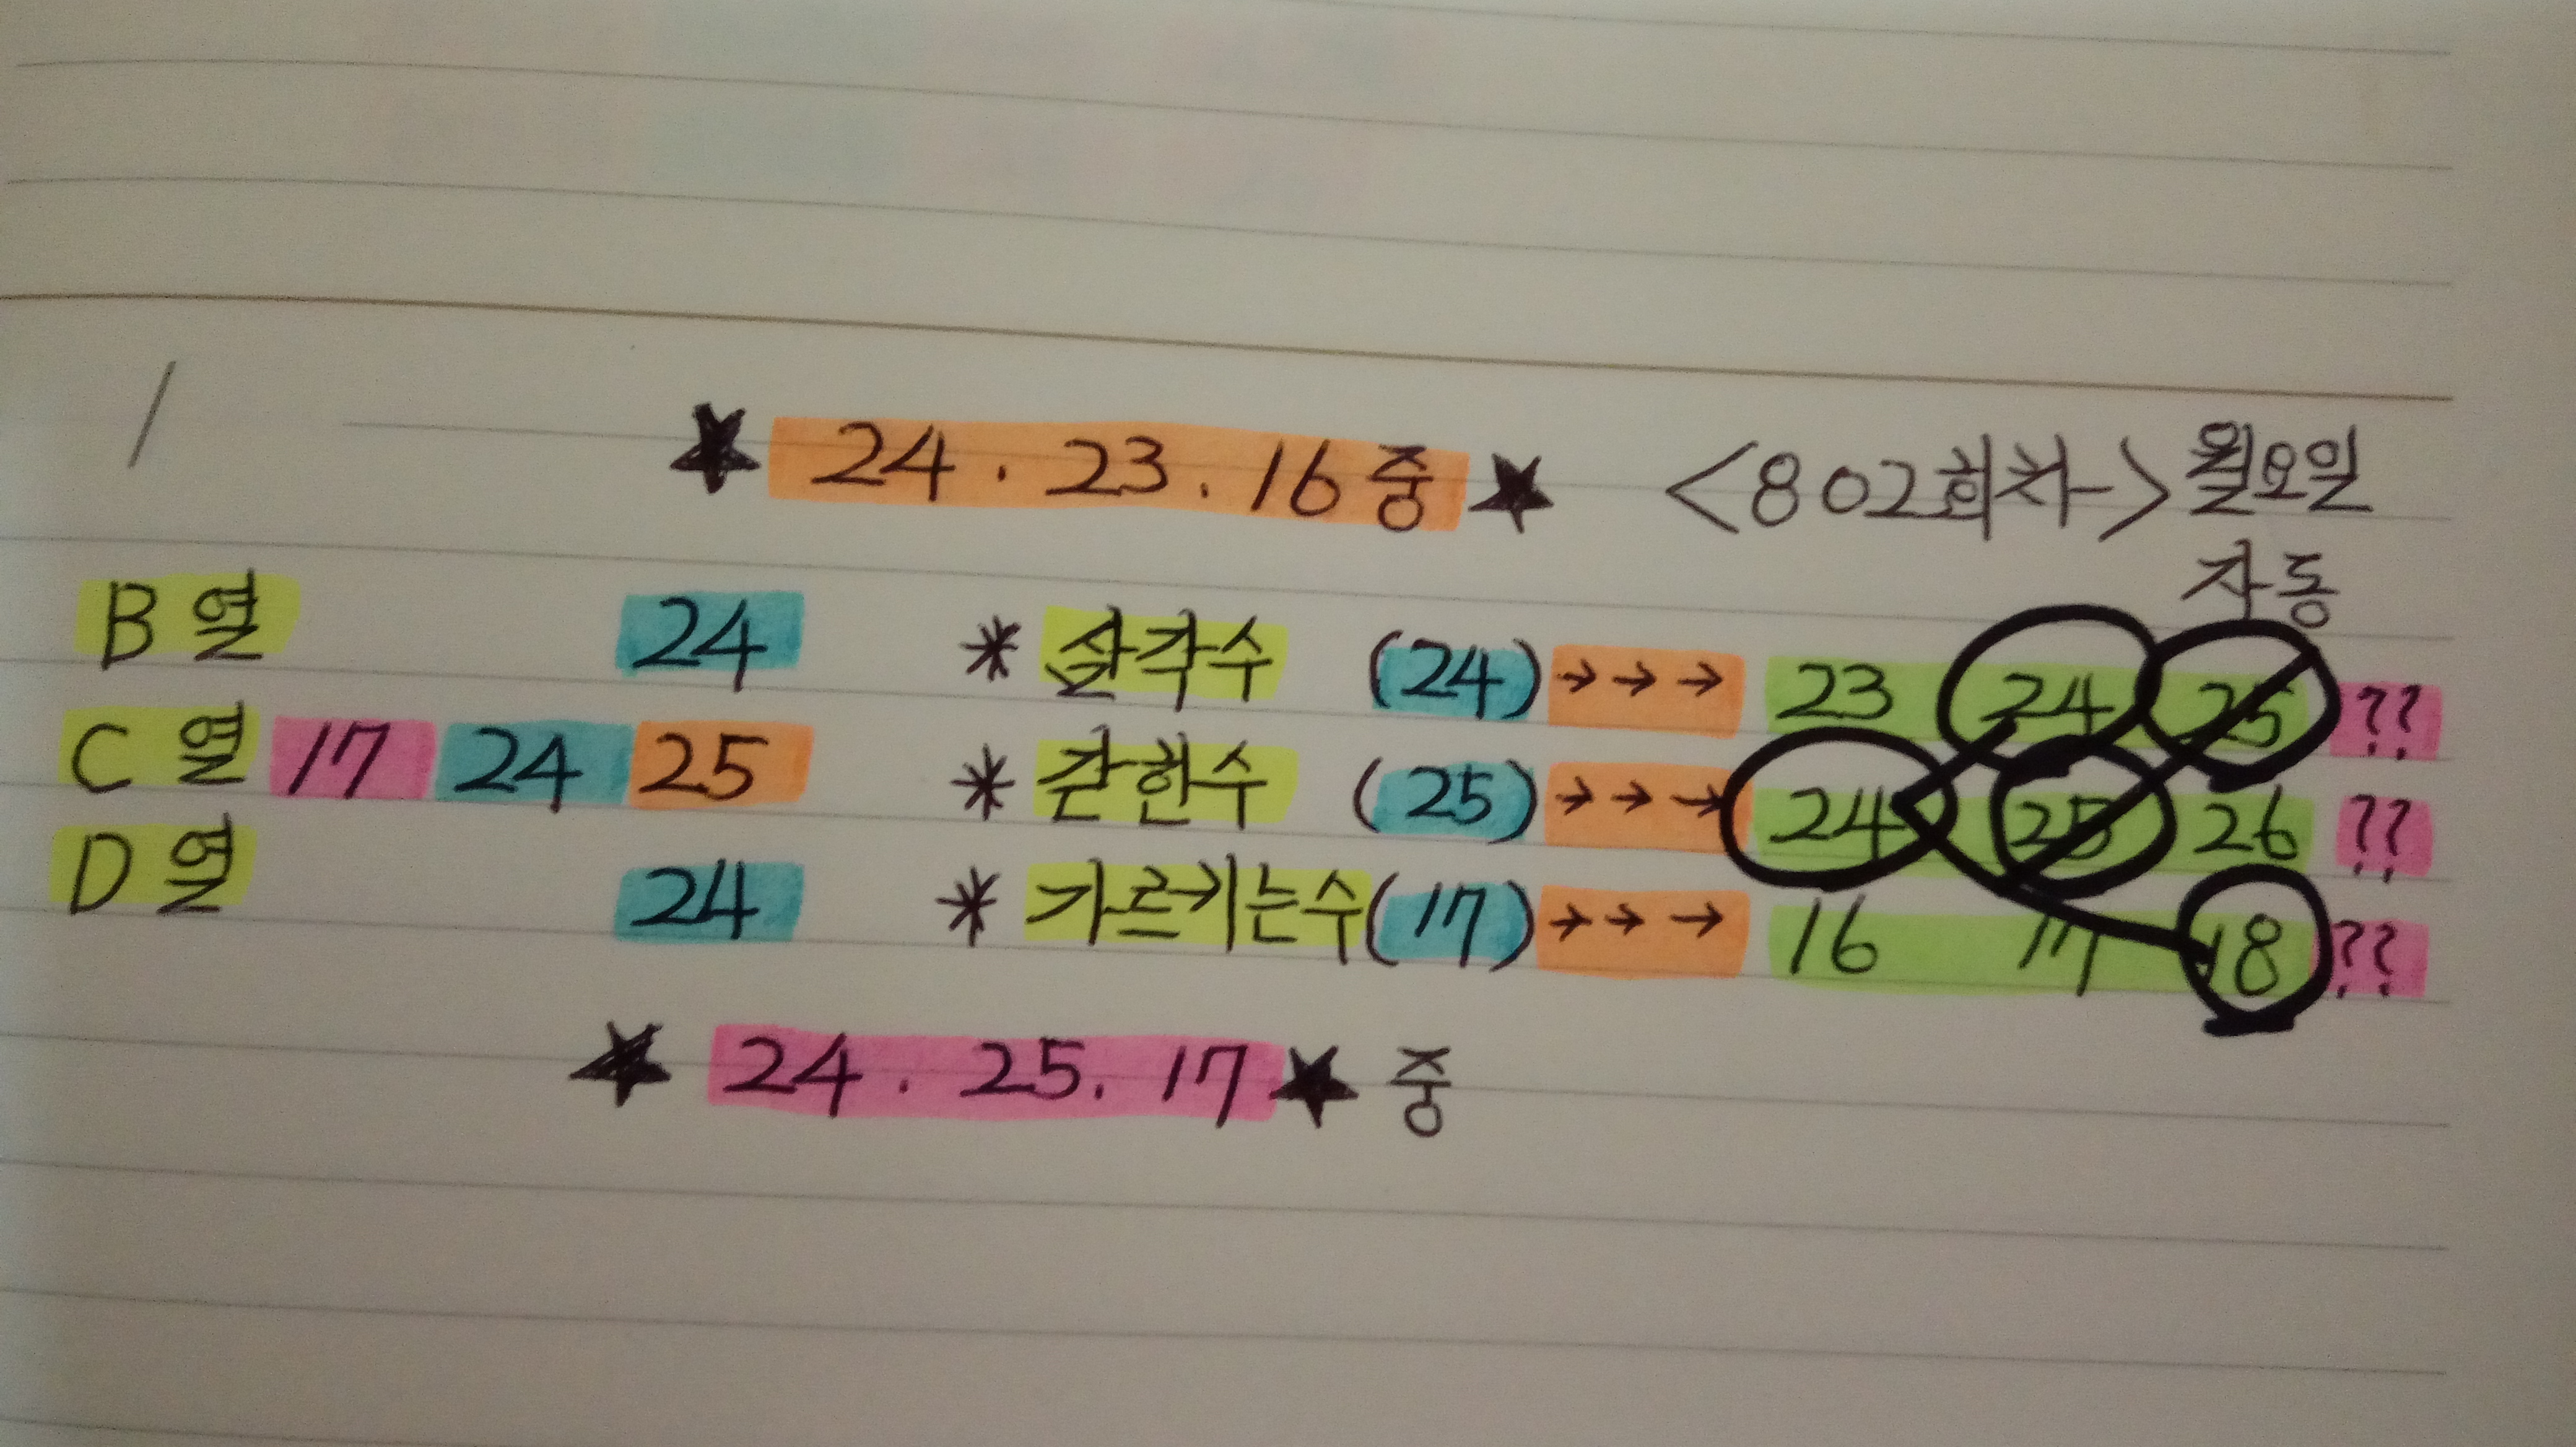 ★ 24 . 23 . 16 중 ★ <802회차> 월요일
자동
B열 24 * 삼각수 (24) →→→ 23 24 25 ??
C열 17 24 25 * 칸한수 (25) →→→ 24 25 26 ??
D열 24 * 가르키는수(17) →→→ 16 17 18 ??
★ 24 . 25 . 17 ★ 중